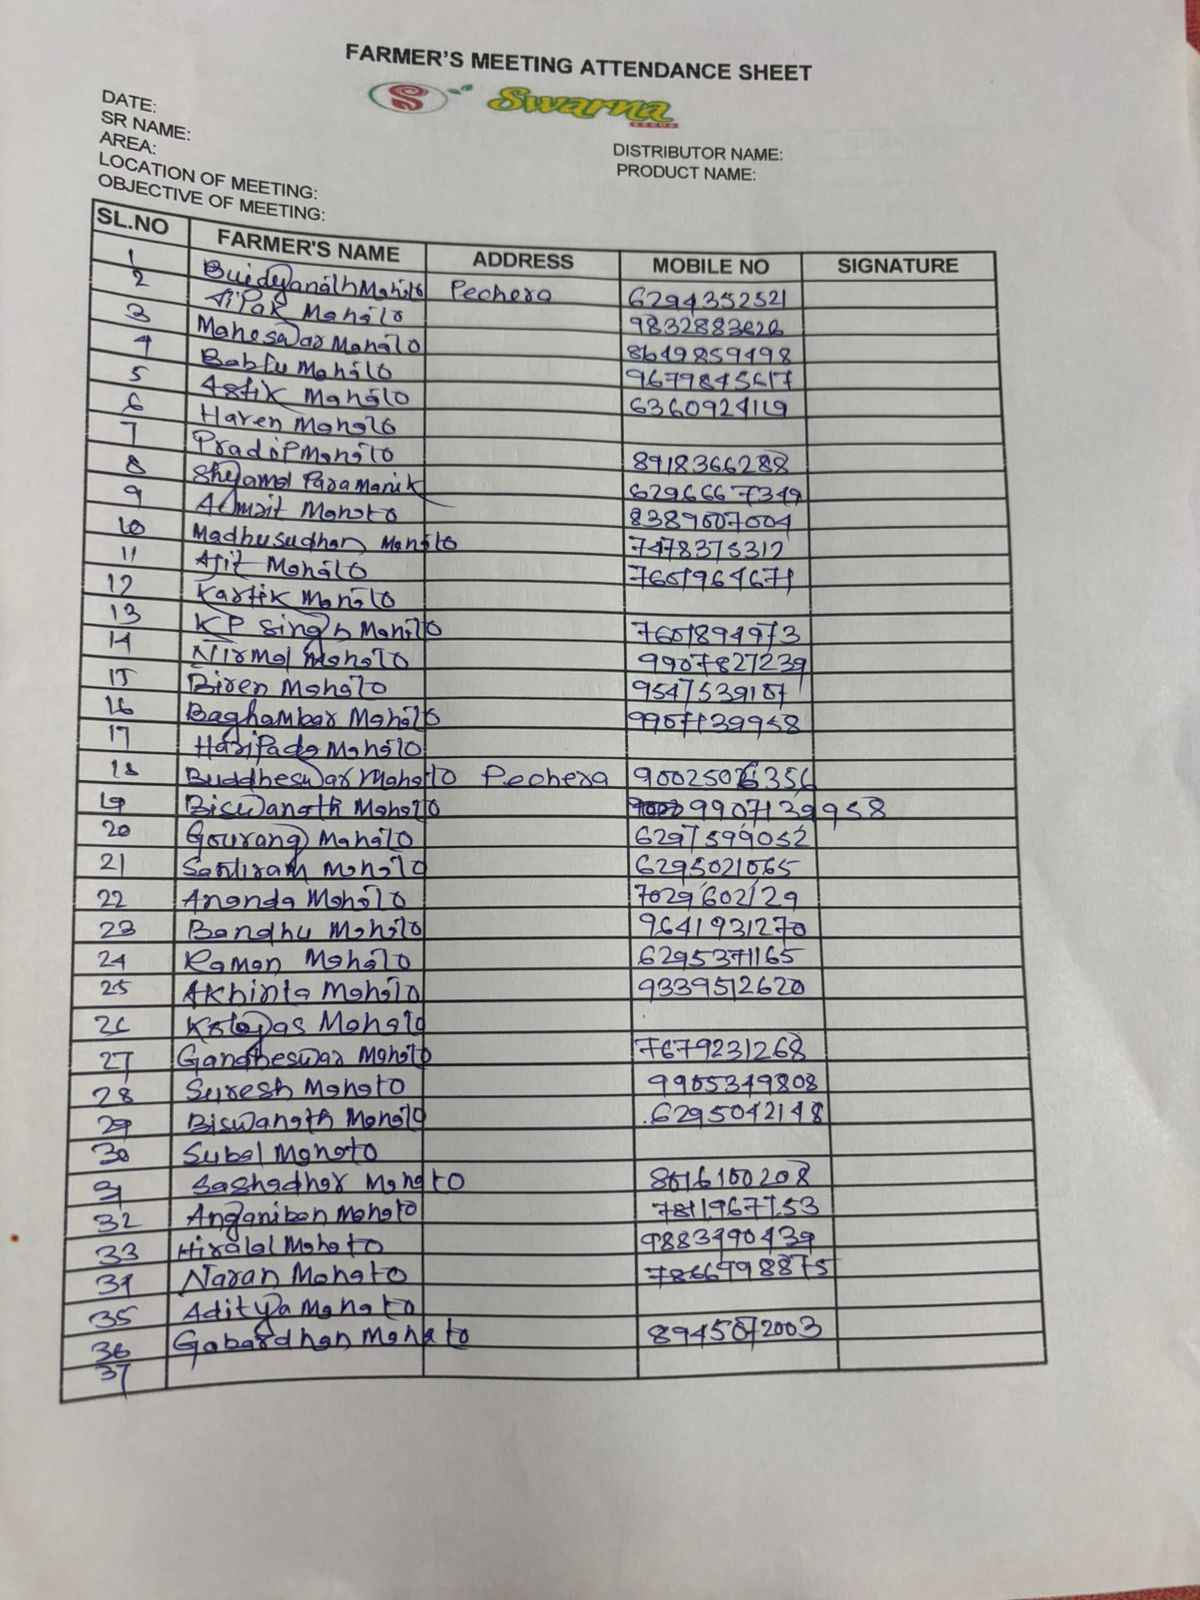 FARMER'S MEETING ATTENDANCE SHEET
Swarna
DATE:
SR NAME:
AREA:
LOCATION OF MEETING:
OBJECTIVE OF MEETING:
DISTRIBUTOR NAME:
PRODUCT NAME:
SL.NO FARMER'S NAME ADDRESS MOBILE NO SIGNATURE
1 Buidyanath Mahato Pechera 6294352521
2 Dipak Mahato
3 Maheswar Mahato 8649859498
4 Bablu Mahato 9679845617
5 Astik Mahato 6360924119
6 Haren Mahato
7 Pradip Mahato 8918366288
8 Shyamal Paramanik 6296667349
9 Mahato 8389007004
10 Madhusudhan Mahato 7478375312
11 Ajit Mahato 7601964671
12 Kartik Mahato
13 KP Singh Mahato 7601894973
14 Nirmal Mahato 9907827239
15 Biren Mahato 9547539107
16 Baghambar Mahato 9907139958
17 Haripada Mahato
18 Buddheswar Mahato Pechera 90025026356
19 Biswanath Mahato 9907139958
20 Gourang Mahato 6297599052
21 Santiram Mahato 6295021065
22 Ananda Mahato 7029602129
23 Bandhu Mahato 9641931270
24 Raman Mahato 6295371165
25 Akhinta Mahato 9339512620
26 Mahato
27 Gandheswar Mahato 7679231268
28 Suresh Mahato 9905349808
29 Biswanath Mahato 6295042148
30 Subal Mahato
31 Sashadhar Mahato 8016100208
32 Anganiban Mahato 7811967753
33 Hiralal Mahato 9883490439
34 Naran Mahato 7866998875
35 Aditya Mahato
36 Gobardhan Mahato 8945072003
37